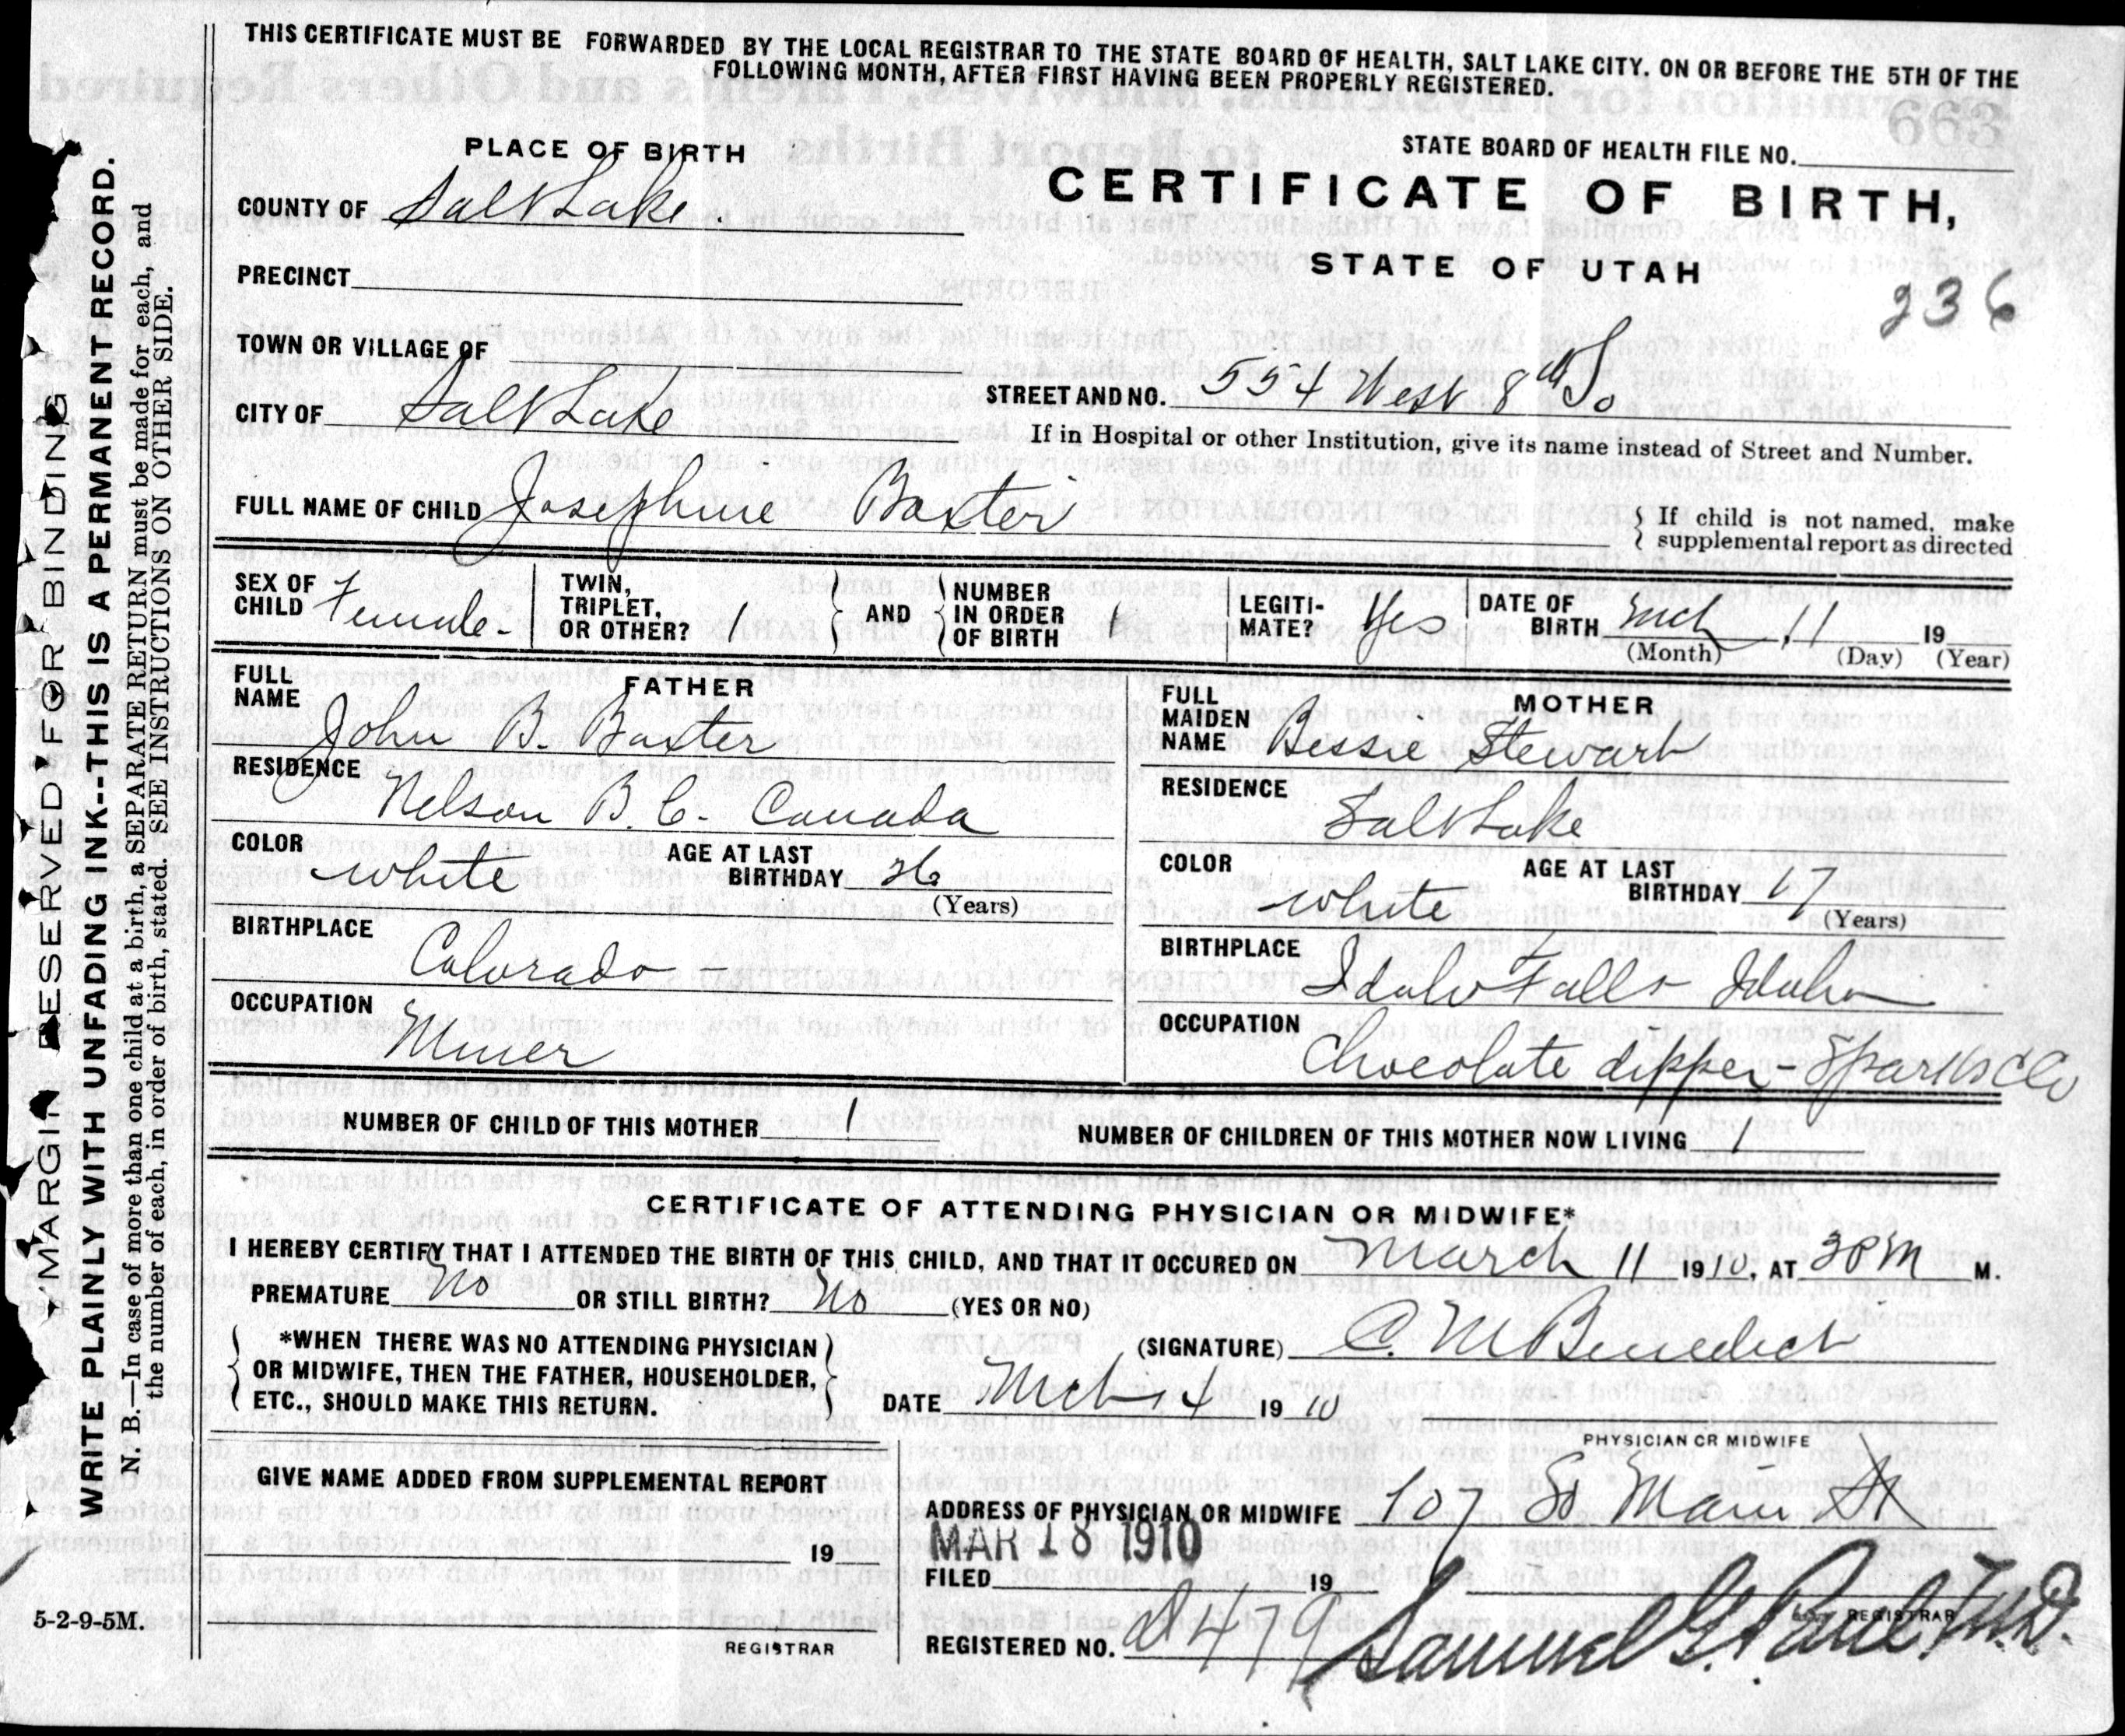 THIS CERTIFICATE MUST BE FORWARDED BY THE LOCAL REGISTRAR TO THE STATE BOARD OF HEALTH, SALT LAKE CITY. ON OR BEFORE THE 5TH OF THE
FOLLOWING MONTH, AFTER FIRST HAVING BEEN PROPERLY REGISTERED.
663
PLACE OF BIRTH
STATE BOARD OF HEALTH FILE NO.
CERTIFICATE OF BIRTH,
STATE OF UTAH
236
COUNTY OF Salt Lake.
PRECINCT
TOWN OR VILLAGE OF
CITY OF Salt Lake
STREET AND NO. 554 West 8th So
If in Hospital or other Institution, give its name instead of Street and Number.
FULL NAME OF CHILD Josephine Baxter
If child is not named, make
supplemental report as directed
SEX OF CHILD Female-
TWIN, TRIPLET, OR OTHER? 1
AND
NUMBER IN ORDER OF BIRTH 1
LEGITI-MATE? Yes
DATE OF BIRTH Mch 11 19
(Month) (Day) (Year)
FATHER
FULL NAME John B. Baxter
RESIDENCE
Nelson B.C. Canada
COLOR white
AGE AT LAST BIRTHDAY 26
(Years)
BIRTHPLACE
Colorado -
OCCUPATION
Miner
MOTHER
FULL MAIDEN NAME Bessie Stewart
RESIDENCE
Salt Lake
COLOR white
AGE AT LAST BIRTHDAY 17
(Years)
BIRTHPLACE
Idaho Falls Idaho
OCCUPATION
Chocolate dipper-
NUMBER OF CHILD OF THIS MOTHER 1
NUMBER OF CHILDREN OF THIS MOTHER NOW LIVING 1
CERTIFICATE OF ATTENDING PHYSICIAN OR MIDWIFE*
I HEREBY CERTIFY THAT I ATTENDED THE BIRTH OF THIS CHILD, AND THAT IT OCCURED ON March 11 1910, AT 3 PM M.
PREMATURE No OR STILL BIRTH? No (YES OR NO)
*WHEN THERE WAS NO ATTENDING PHYSICIAN
OR MIDWIFE, THEN THE FATHER, HOUSEHOLDER,
ETC., SHOULD MAKE THIS RETURN.
(SIGNATURE) C. M Benedict
DATE Mch 14 1910
PHYSICIAN OR MIDWIFE
GIVE NAME ADDED FROM SUPPLEMENTAL REPORT
19
REGISTRAR
ADDRESS OF PHYSICIAN OR MIDWIFE 107 So Main St
MAR 18 1910
FILED 19
REGISTERED NO. 479
Samuel G. Paul M.D.
REGISTRAR
5-2-9-5M.
MARGIN RESERVED FOR BINDING
WRITE PLAINLY WITH UNFADING INK--THIS IS A PERMANENT RECORD.
N. B.—In case of more than one child at a birth, a SEPARATE RETURN must be made for each, and
the number of each, in order of birth, stated. SEE INSTRUCTIONS ON OTHER SIDE.